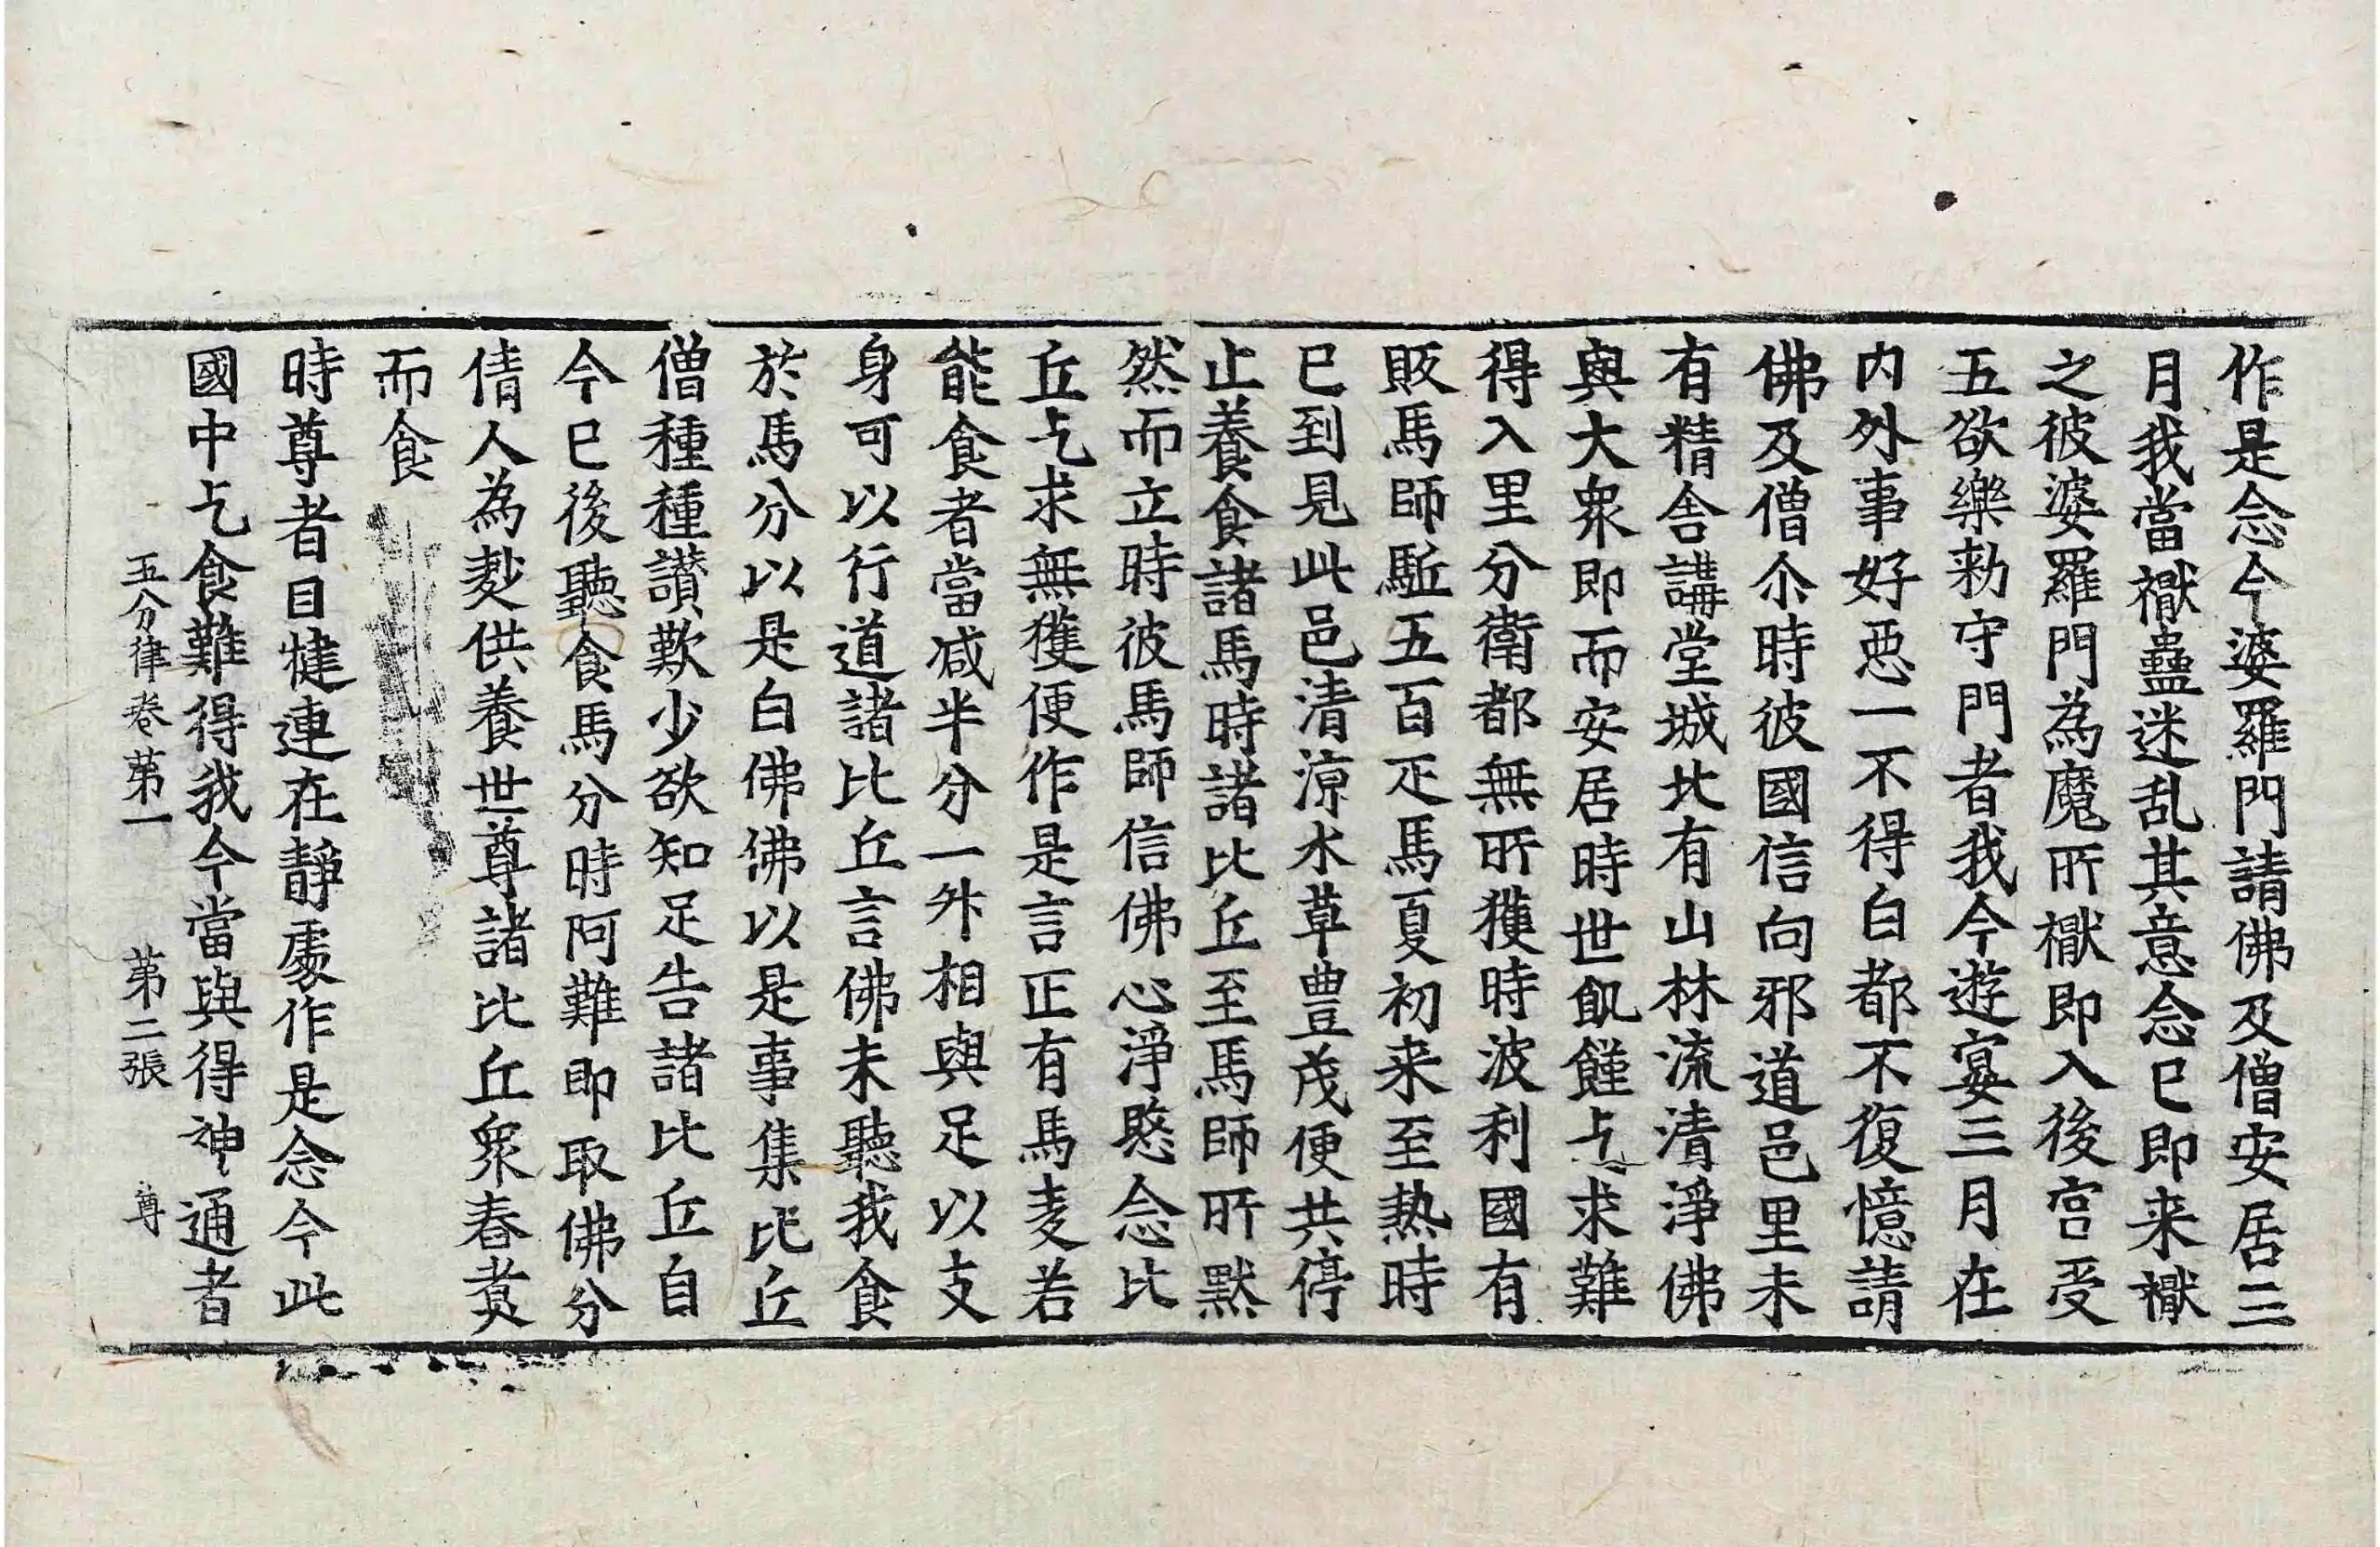 作是念今婆羅門請佛及僧安居三
月我當𧝬蠱迷乱其意念已即来𧝬
之彼婆羅門為魔所𧝬即入後宮受
五欲樂勑守門者我今遊宴三月在
内外事好惡一不得白都不復憶請
佛及僧尒時彼國信向邪道邑里未
有精舍講堂城北有山林流清淨佛
與大衆即而安居時世飢饉乞求難
得入里分衛都無所獲時波利國有
販馬師駈五百疋馬夏初来至熱時
已到見此邑清涼水草豊茂便共停
止養食諸馬時諸比丘至馬師所默
然而立時彼馬師信佛心淨愍念比
丘乞求無獲便作是言正有馬麦若
能食者當减半分一升相與足以支
身可以行道諸比丘言佛未聽我食
於馬分以是白佛佛以是事集比丘
僧種種讃歎少欲知足告諸比丘自
今已後聽食馬分時阿難即取佛分
倩人為麨供養世尊諸比丘衆舂煑
而食
時尊者目犍連在靜處作是念今此
國中乞食難得我今當與得神通者
五分律卷第一 第二張 尊